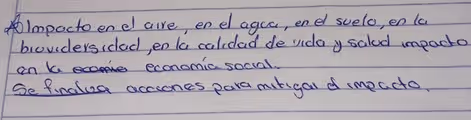 Impacto en el aire, en el agua, en el suelo, en la
biovidersidad, en la calidad de vida y salud impacto
en la economía social.
Se finaliza acciones para mitigar el impacto.